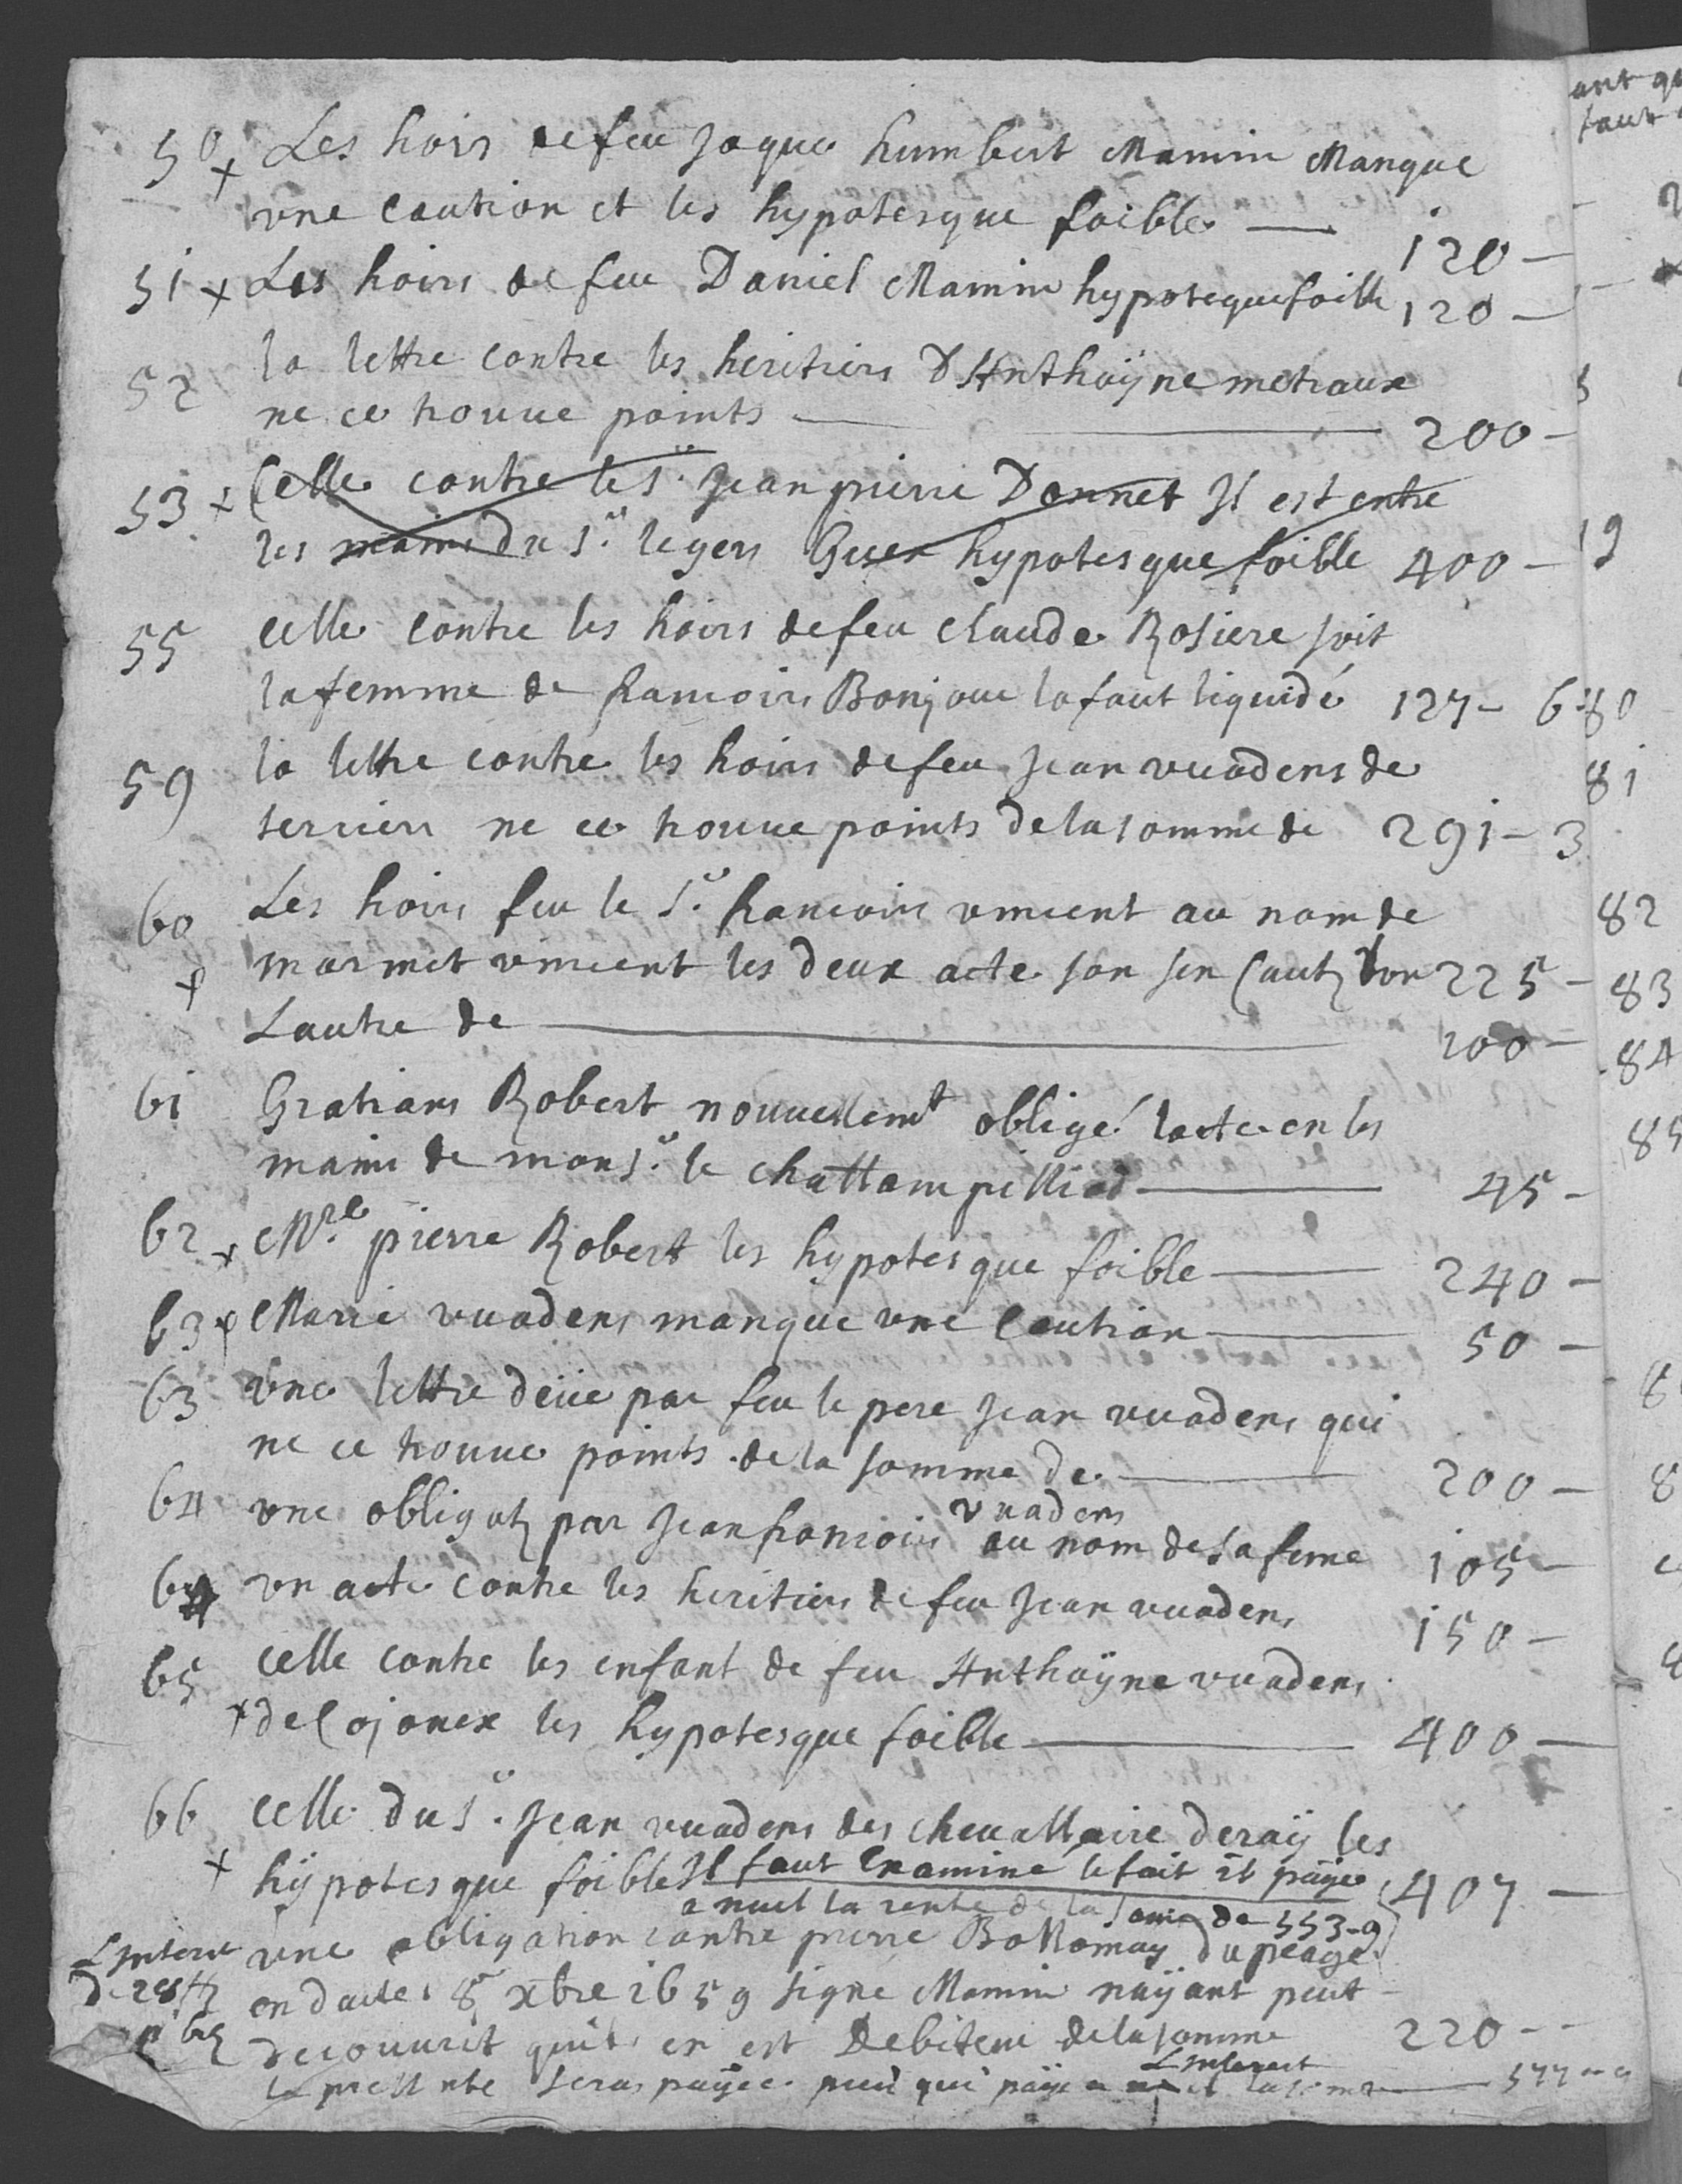 50 + Les hoirs de feu Jaque humbert Mamin Manque
vne Caution et les hypotesque foible — 120 —
51 + Les hoirs de feu Daniel Mamin hypoteque foible 120 —
52 la lettre contre les heritiers D Anthoÿne metraux
ne ce trouue points — 200 —
53 + Celle contre le Sr. Jean pierre Donnet Jl est entre
les mains du Sr. legers hypotesque foible 400 —
55 celle contre les hoirs de feu claude Rosiere soit
la femme de francois Bonjour la faut liquidé 127 – 6
59 la lettre contre les hoirs de feu Jean vuadens de
terriers ne ce trouue points de la somme de 291 – 3
60 Les hoirs feu le Sr. francois vincent au nom de
+ marmet vincent les deux acte son sen Caut lon 225 –
Lautre de — 200 –
61 Gratians Robert nouuellemt obligé lacte en les
mains de monsr. le chattam pilliod — 45 –
62 + pierre Robert les hypotesque foible — 240 –
63 + Marie vuadens manque vne Caution — 50 –
63 vne lettre deüe par feu le pere Jean vuadens qui
ne ce trouue points de la somme de — 200 –
vuadens
64 vne obligat par Jean francois au nom de sa feme 105 –
64 vn acte contre les heritiers de feu Jean vuadens 150 –
65 celle contre les enfant de feu Anthoÿne vuadens
+ de Cojonex les hypotesque foible — 400 —
66 celle du Sr. Jean vuadens des cheuallaire deraÿ les
+ hÿpotesque foible Jl faut Examine le fait il paÿe 407 —
a nuit la rente de la some de 553-9
Linteret vne obligation contre pierre Bollomay du péage
en date 8 xbre 1659 signé Mamin naÿant peut
decouurit quil en est Debiteur de la somme 220 - -
Linterest
sera paÿée puis qui paÿe 577 - 9
ant
faut
19
80
81
82
83
84
85